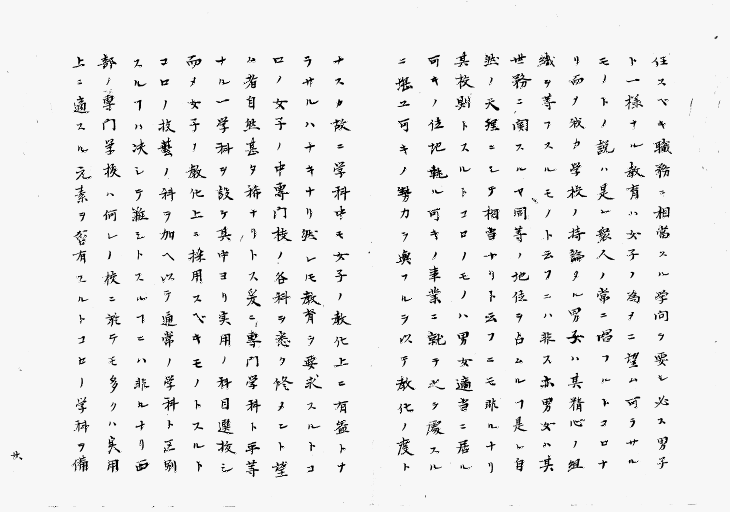 任スベキ職務ニ相當スル学問ヲ要シ必ス男子
ト一様ナル教育ハ女子ノ為メニ望ム可ラサル
モノトノ説ハ是レ衆人ノ常ニ唱フルトコロナ
リ而メ我カ学校ノ持論タル男子女ハ其精心ノ組
織ヲ等フスルモノト云フニハ非ス亦男女ハ其
世務ニ関スルヤ同等ノ地位ヲ占ムルフ是レ自
然ノ天理ニシテ相当ナリト云フニモ非ルナリ
其校則トスルトコロノモノハ男女適当ニ居ル
可キノ位地執ル可キノ事業ニ就テ之ヲ處スル
ニ堪ユ可キノ努力ヲ與フルヲ以テ教化ノ度ト
ナスカ故ニ学科中モ女子ノ教化上ニ有益トナ
ラサルハナキナリ然レモ教育ヲ要求スルトコ
ロノ女子ノ中専門校ノ各科ヲ悉ク修メント望
ム者自然甚タ稀ナリトス爰ニ専門学科ト平等
ナル一学科ヲ設ケ其中ヨリ実用ノ科目選抜シ
而メ女子ノ教化上ニ採用スベキモノトスルト
コロノ技藝ノ科ヲ加ヘ以テ通常ノ学科ト区別
スルフハ决シテ難シトスルフニハ非ルナリ西
部ノ専門学校ハ何レノ校ニ於テモ多クハ実用
上ニ適スル元素ヲ含有スルトコロノ学科ヲ備